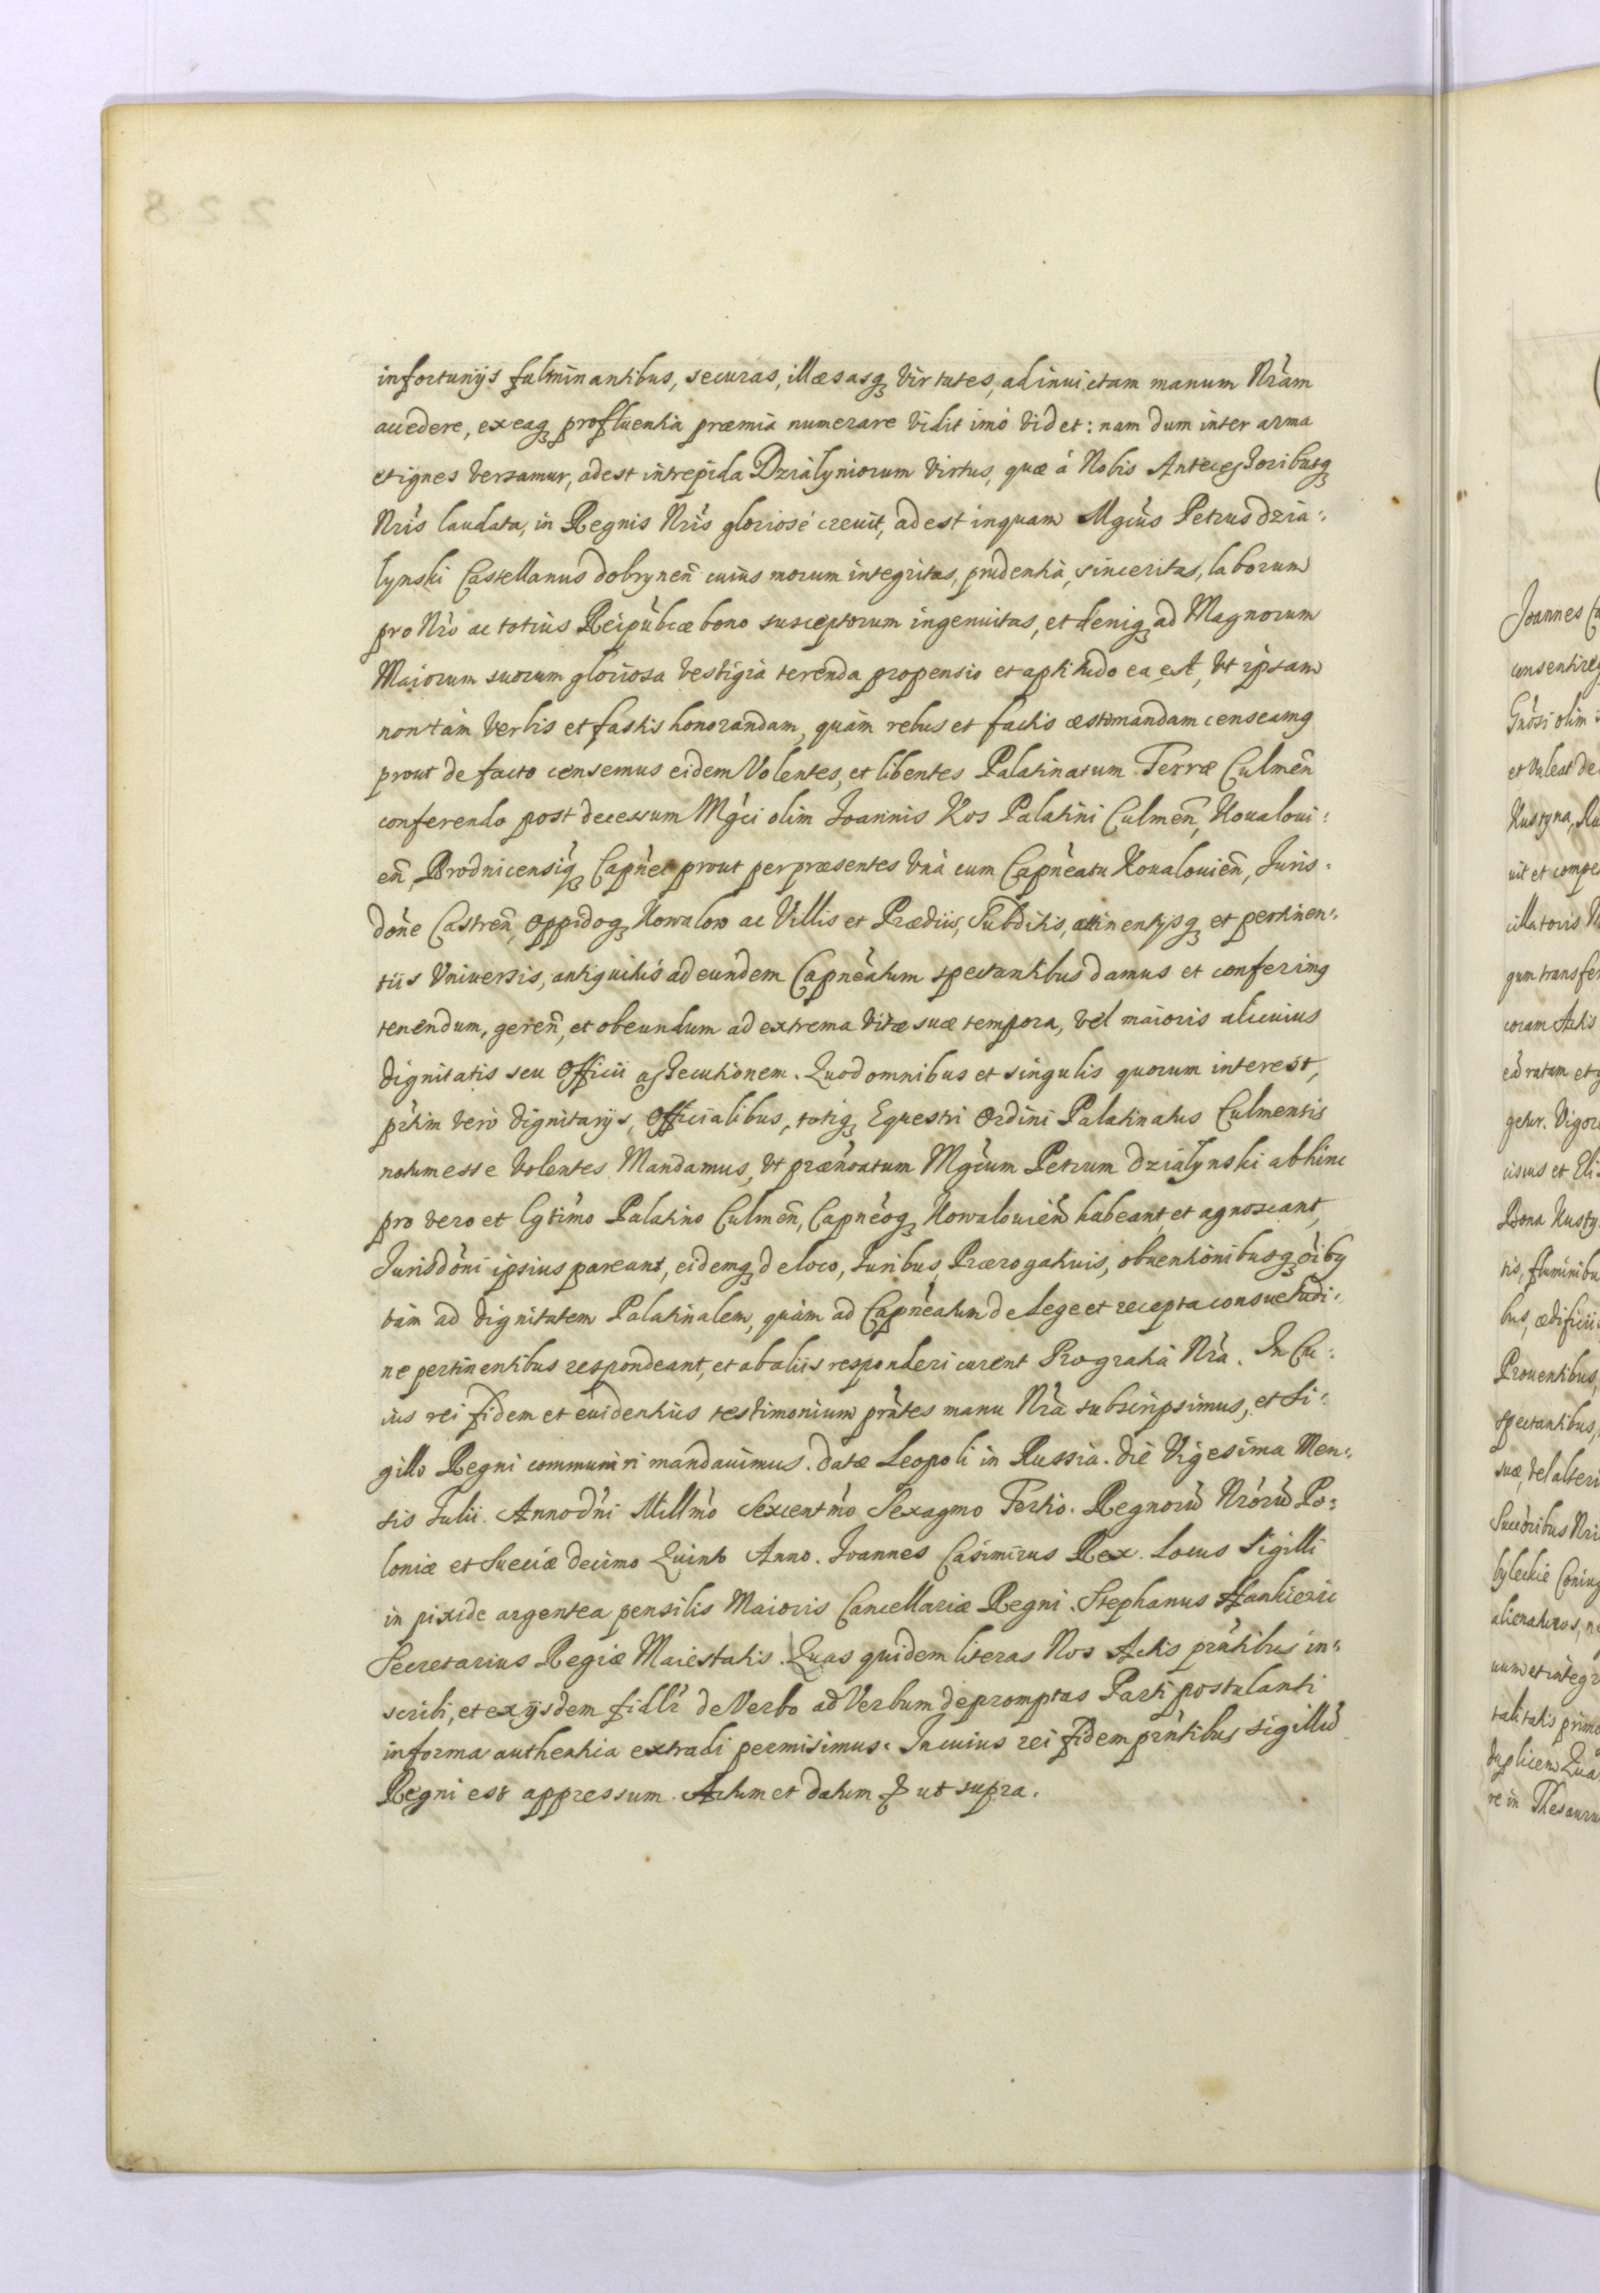 infortunijs fulminantibus, securas, illæsasq virtutes, ad inuictam manum Nràm
accedere, ex eaq profluentia præmia numerare vidit imò videt: nam dum inter arma
et ignes versamur, adest intrepida Dzialyniorum virtus, quæ á Nobis Antecessoribusq
Nrìs laudata, in Regnis Nrìs gloriosé crevit, adest inquam Mgcùs Petrus Dzia:
lynski Castellanus dobrynen̄ cuius morum integritas, prudentia, sinceritas, laborum
pro Nrò ac totius Reipùbcæ bono susceptorum ingenuitas, et deniq ad Magnorum
Maiorum suorum gloriosa vestigia terenda propensio et aptitudo ea est, Vt ipsam
non tàm verbis et fastis honorandam, quàm rebus et factis æstimandam censeamq
prout de facto censemus eidem Volentes, et libentes Palatinatum Terræ Culmen̄
conferendo post decessum Mgci olim Joannis Kos Palatini Culmen̄, Koualoui:
en̄, Brodnicensiq Capnei prout per præsentes Vnà cum Capneatu Koualouien̄, Juris:
done Castren̄, Oppidoq Kowalow ac Villis et Prædiis, Subditis, attinentijsq et pertinen:
tiis Vniuersis, antiquitùs ad eundem Capneatum spectantibus damus et conferimq
tenendum, geren̄, et obeundum ad extrema vitæ suæ tempora, vel maioris alicuius
dignitatis seu Officii assecutionem. Quod omnibus et singulis quorum interest,
prtim verò dignitarijs, Officialibus, totiq Equestri Ordini Palatinatus Culmensis
notum esse Volentes Mandamus, Vt prænoatum Mgcùm Petrum Dzialynski abhinc
pro vero et lgtimo Palatino Culmen̄, Capneoq Kowalouien̄ habeant et agnoscant,
Jurisdoni ipsius pareant, eidemq de loco, Juribus, Prærogatiuis, obuentionibusq oibq
tàm ad dignitatem Palatinalem, quàm ad Capneatum de Lege et recepta consuetudi:
ne pertinentibus respondeant, et ab aliis responderi curent Pro gratia Nrà. In Cu:
ius rei fidem et euidentius testimonium prntes manu Nrà subscripsimus, et Si:
gillo Regni communiri mandauimus. Datæ Leopoli in Russia. Die Vigesima Men:
sis Julii. Anno Dni Millmo Sexcentmo Sexagmo Tertio. Regnorū Nrorū Po:
loniæ et Sueciæ decimo Quinto Anno. Joannes Casimirus Rex. Locus Sigilli
in pixide argentea pensilis Maioris Cancellariæ Regni. Stephanus Hankiewic
Secretarius Regiæ Maiestatis. Quas quidem literas Nos Actis prntibus in:
scribi, et ex ijsdem fidlr de Verbo ad Verbum depromptas Parti postulanti
in forma authentica extradi permisimus. In cuius rei fidem prntibus Sigillū
Regni est appressum. Actum et datum & ut supra.
228
Joannes
consentire
Gnosi olim
et Valeat de
Kustyna
uit et compe
cillatoris
qum transfe
coram Actis
eò ratam et
getur. Vigor
cisus et Eli
Bona Kusty
tis, fluminibu
bus, ædificii
Prouentibus,
spectantibus,
suæ, vel alteri
Succoribus Nri
byleckie Coniug
alienaturos, n
uum et integr
talitatis primo
duplicem Qua
re in Thesauru